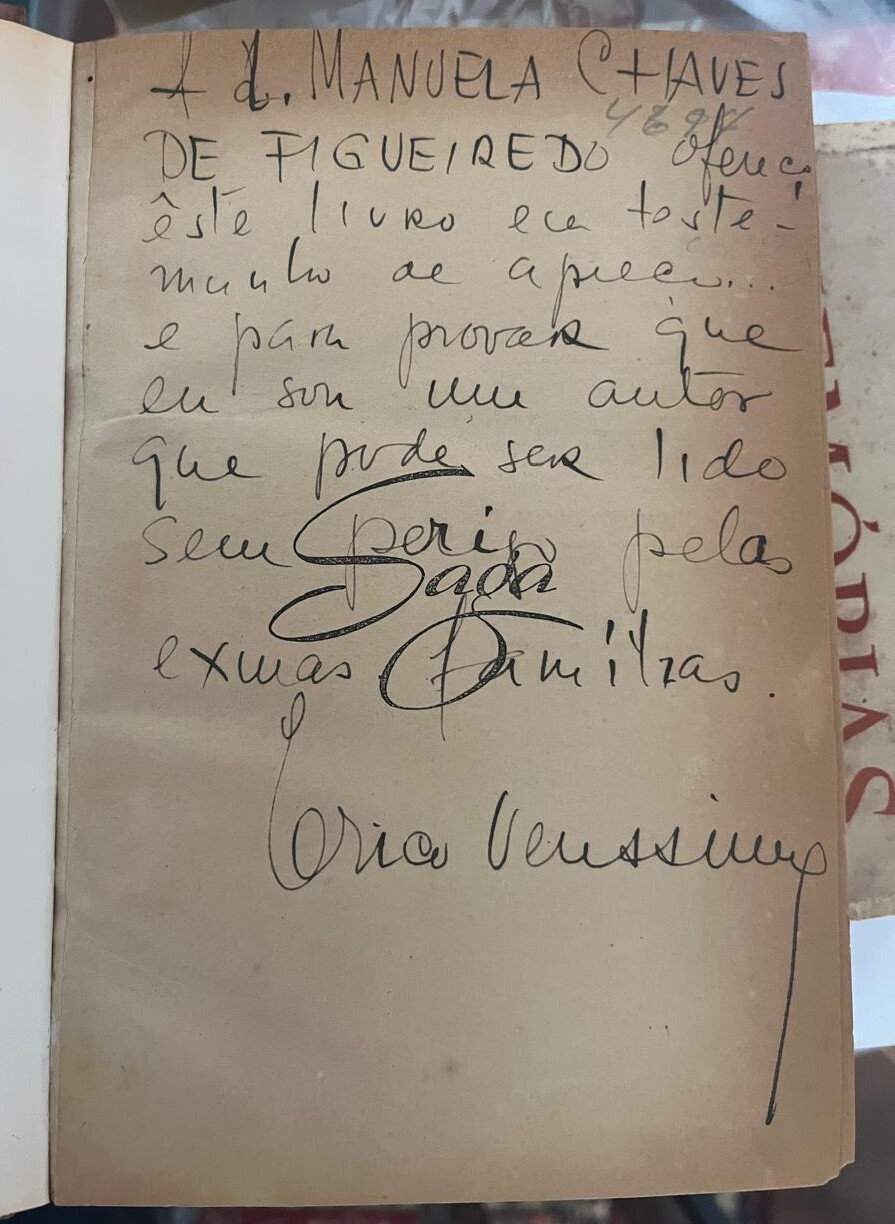 A d. MANUELA CHAVES
DE FIGUEIREDO ofereço
êste livro em teste-
munho de apreço...
e para provar que
eu sou um autor
que pode ser lido
sem perigo pelas
Saga
exmas famílias.
Erico Verissimo
MEMÓRIAS